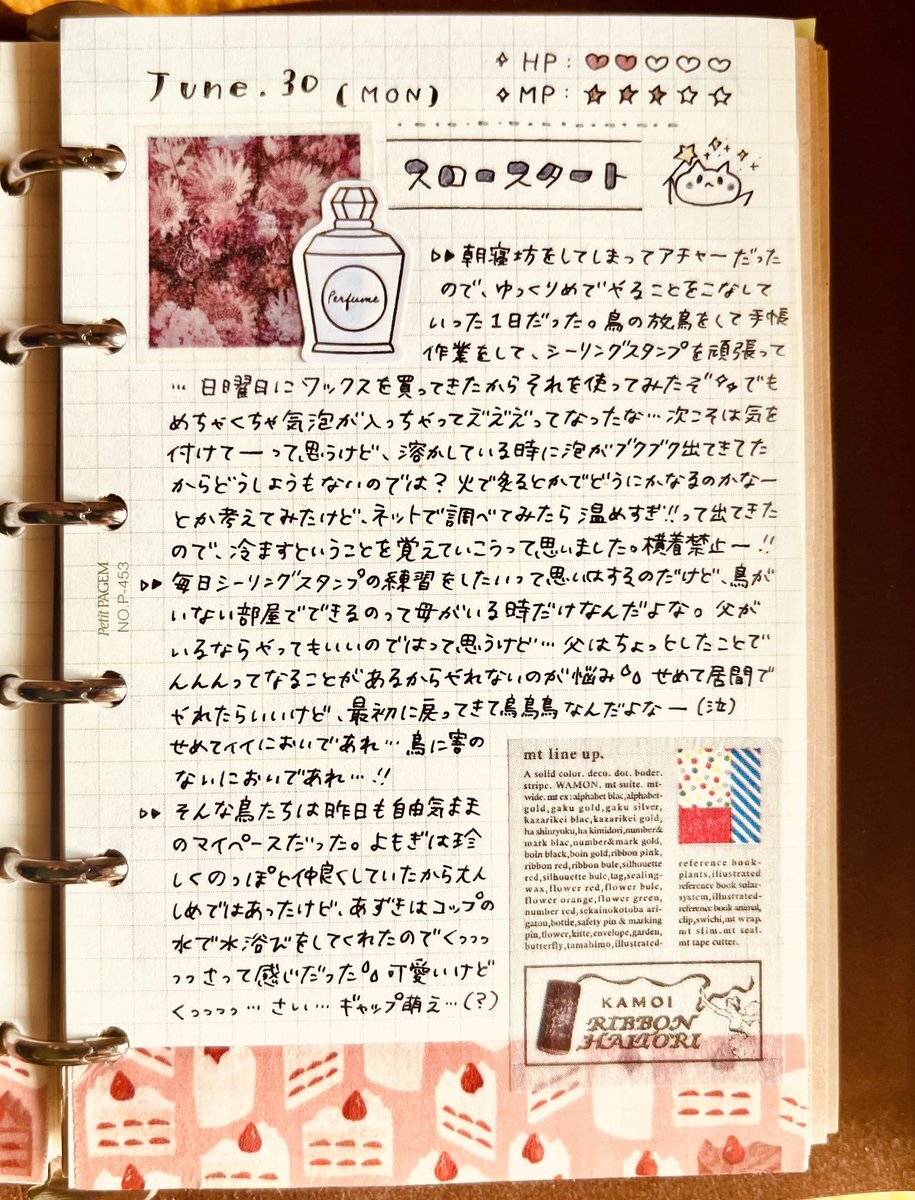 June. 30 (MON)
✧ HP: ♥♥♡♡♡
✧ MP: ★★★☆☆
スロースタート
Perfume
▷▷ 朝寝坊をしてしまってアチャーだった
ので、ゆっくりめでやることをこなして
いった1日だった。鳥の放鳥をして手帳
作業をして、シーリングスタンプを頑張って
… 日曜日にワックスを買ってきたからそれを使ってみたぞ でも
めちゃくちゃ気泡が入っちゃってえ゛え゛え゛ってなったな… 次こそは気を
付けてーって思うけど、溶かしている時に泡がブクブク出てきてた
からどうしようもないのでは? 火で炙るとかでどうにかなるのかなー
とか考えてみたけど、ネットで調べてみたら温めすぎ!!って出てきた
ので、冷ますということを覚えていこうって思いました。横着禁止ー!!
▷▷ 毎日シーリングスタンプの練習をしたいって思いはするのだけど、鳥が
いない部屋でできるのって母がいる時だけなんだよな。父が
いるならやってもいいのではって思うけど… 父はちょっとしたことで
んんんってなることがあるからやれないのが悩み。 せめて居間で
やれたらいいけど、最初に戻ってきて鳥鳥鳥なんだよなー(泣)
せめてイイにおいであれ… 鳥に害の
ないにおいであれ…!!
▷▷ そんな鳥たちは昨日も自由気まま
のマイペースだった。よもぎは珍
しくのっぽと仲良くしていたからたん
しめではあったけど、あずきはコップの
水で水浴びをしてくれたのでくっっっ
っっさって感じだった。可愛いけど
くっっっっ… さぃ… ギャップ萌え…(?)
Petit PAGEM
NO.P-453
mt line up.
A solid color. deco. dot. boder.
stripe. WAMON. mt suite. mt-
wide. mt ex: alphabet blac,alphabet-
gold,gaku gold,gaku silver,
kazarikei blac,kazarikei gold,
ha shinryoku,ha kimidori,number&
mark blac,number&mark gold,
boin black,boin gold,ribbon pink,
ribbon red,ribbon bule,silhouette
red,silhouette bule,tag,sealing-
wax,flower red,flower bule,
flower orange,flower green,
number red,sekainokotoba ari-
gatou,bottle,safety pin & marking
pin,flower,kitte,envelope,garden,
butterfly,tamahimo,illustrated-
reference book-
plants,illustrated
reference book solar-
system,illustrated-
reference book animal,
clip,swichi,mt wrap.
mt slim.mt seal.
mt tape cutter.
KAMOI
RIBBON
HAITORI